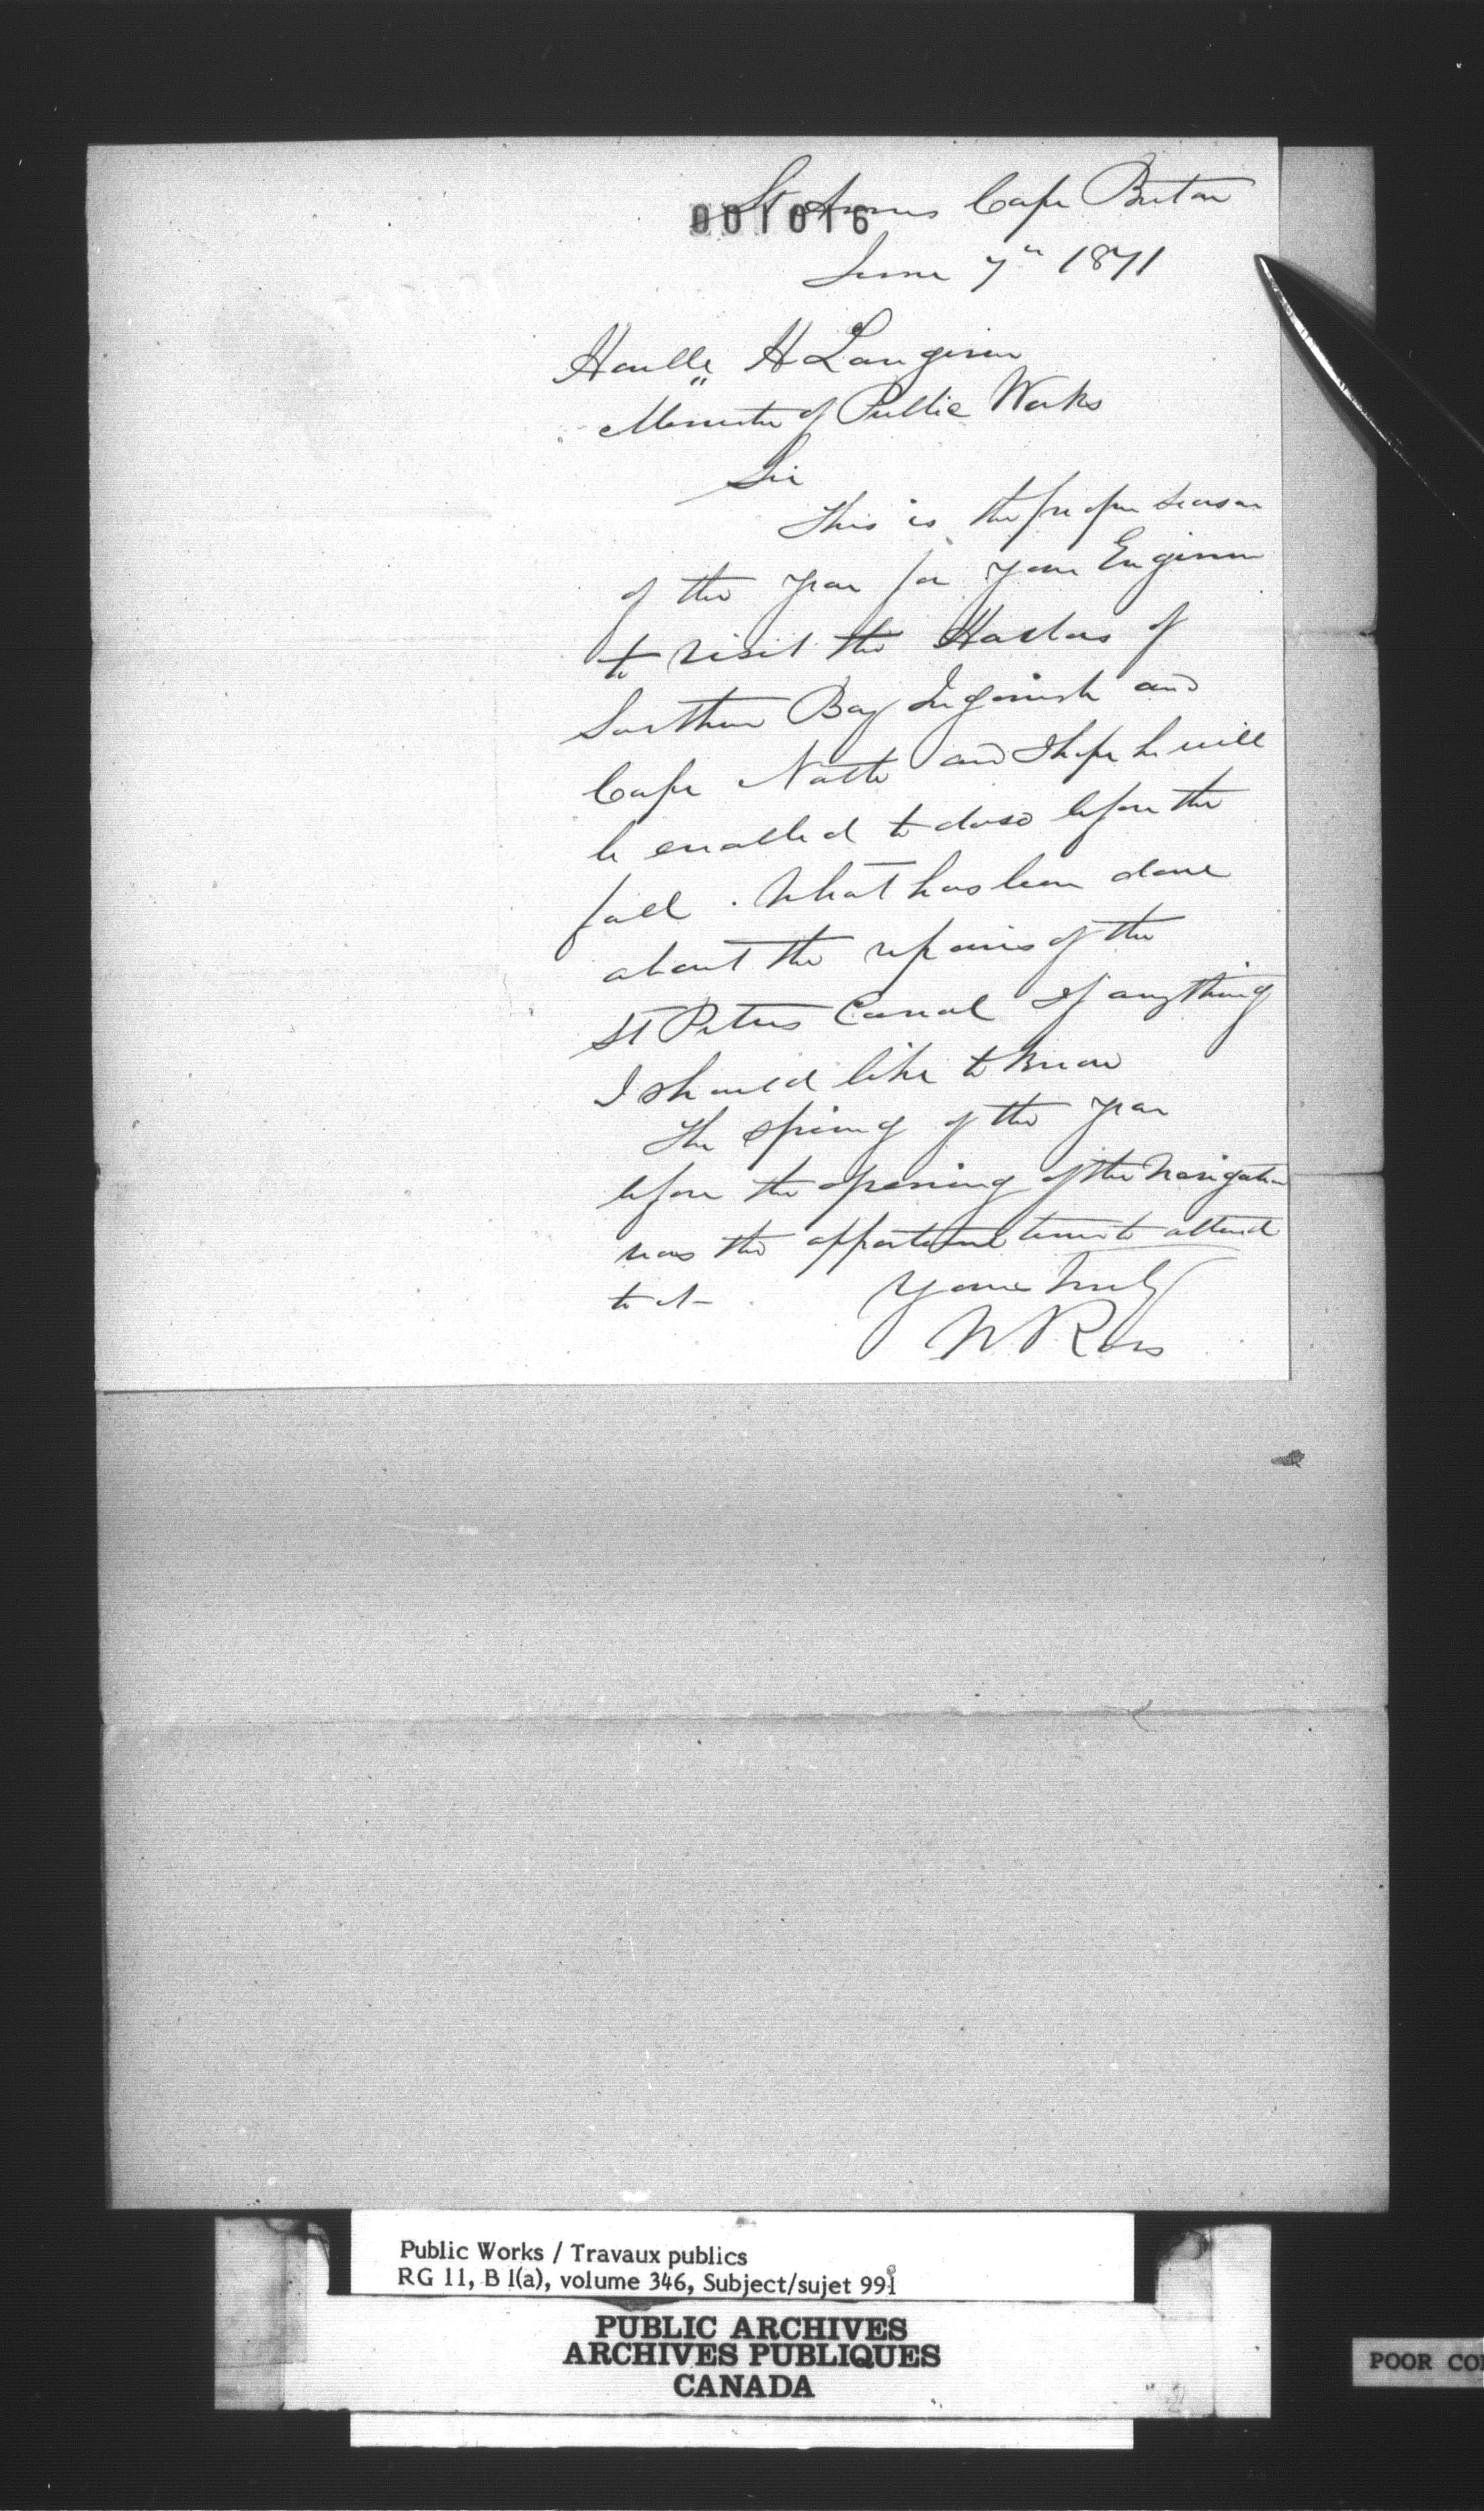 St Anns Cape Breton
001016
June 7th 1871
Honble H Langevin
Minister of Public Works
Sir
This is the proper season
of the year for your Engineer
to visit the Harbors of
Southern Bay Ingonish and
Cape North and I hope he will
be enabled to do so before the
fall. What has been done
about the repairs of the
St Peters Canal If anything
I should like to know
The spring of the year
before the opening of the Navigation
was the opportune time to attend
to it -
Yours truly
W Ross
Public Works / Travaux publics
RG 11, B 1(a), volume 346, Subject/sujet 991
PUBLIC ARCHIVES
ARCHIVES PUBLIQUES
CANADA
POOR CO